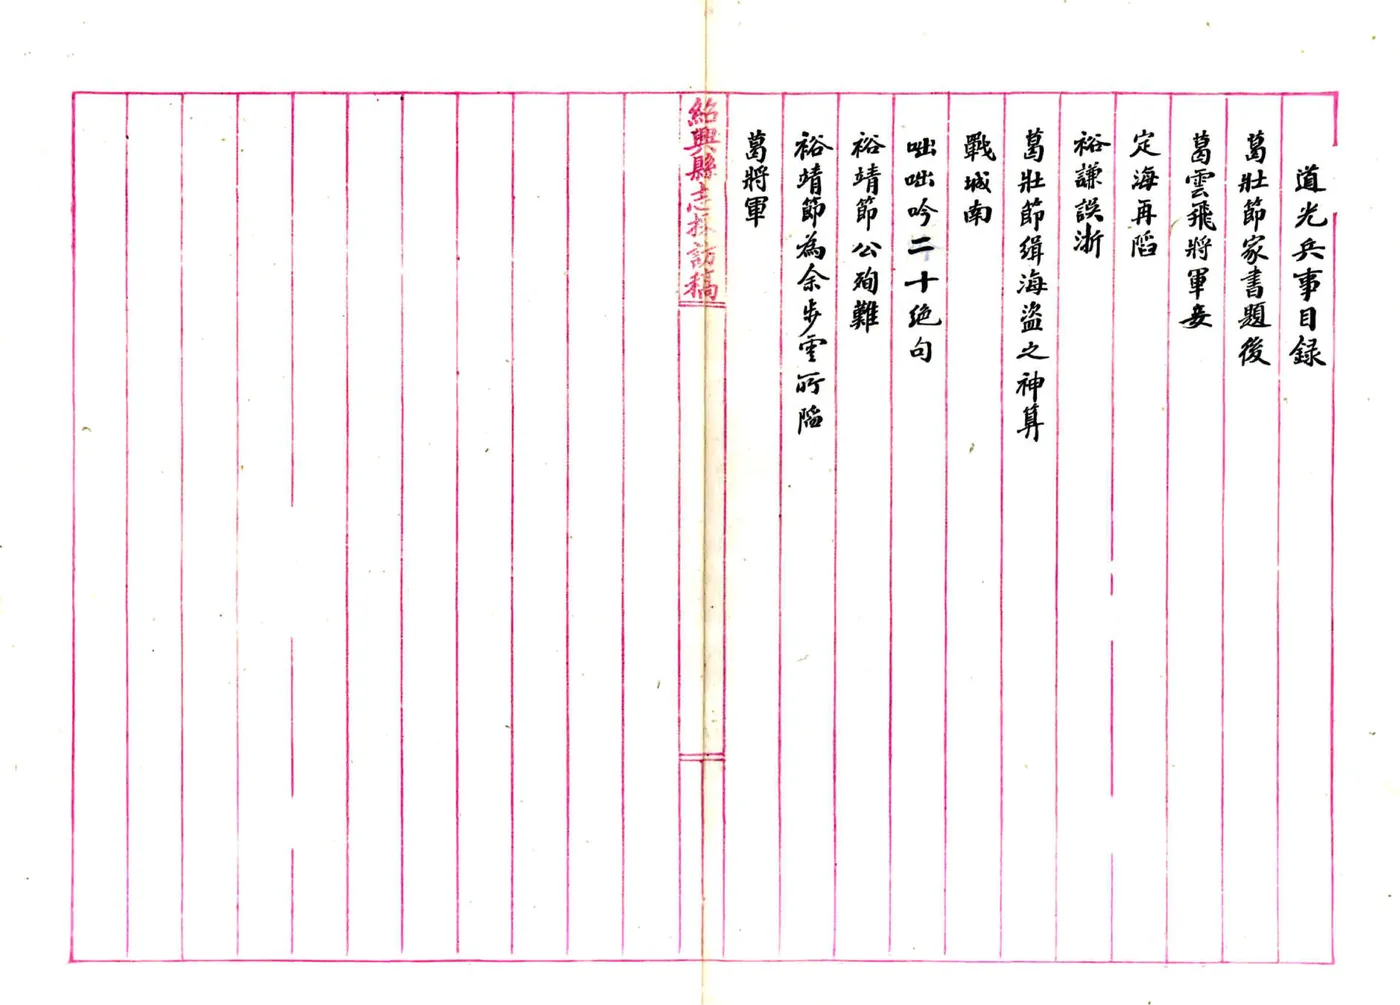 道光兵事目録
葛壯節家書題後
葛雲飛將軍妾
定海再陷
裕謙誤浙
葛壯節緝海盜之神算
戰城南
咄咄吟二十绝句
裕靖節公殉難
裕靖節為余步雲所陷
葛將軍
紹興縣志採訪稿